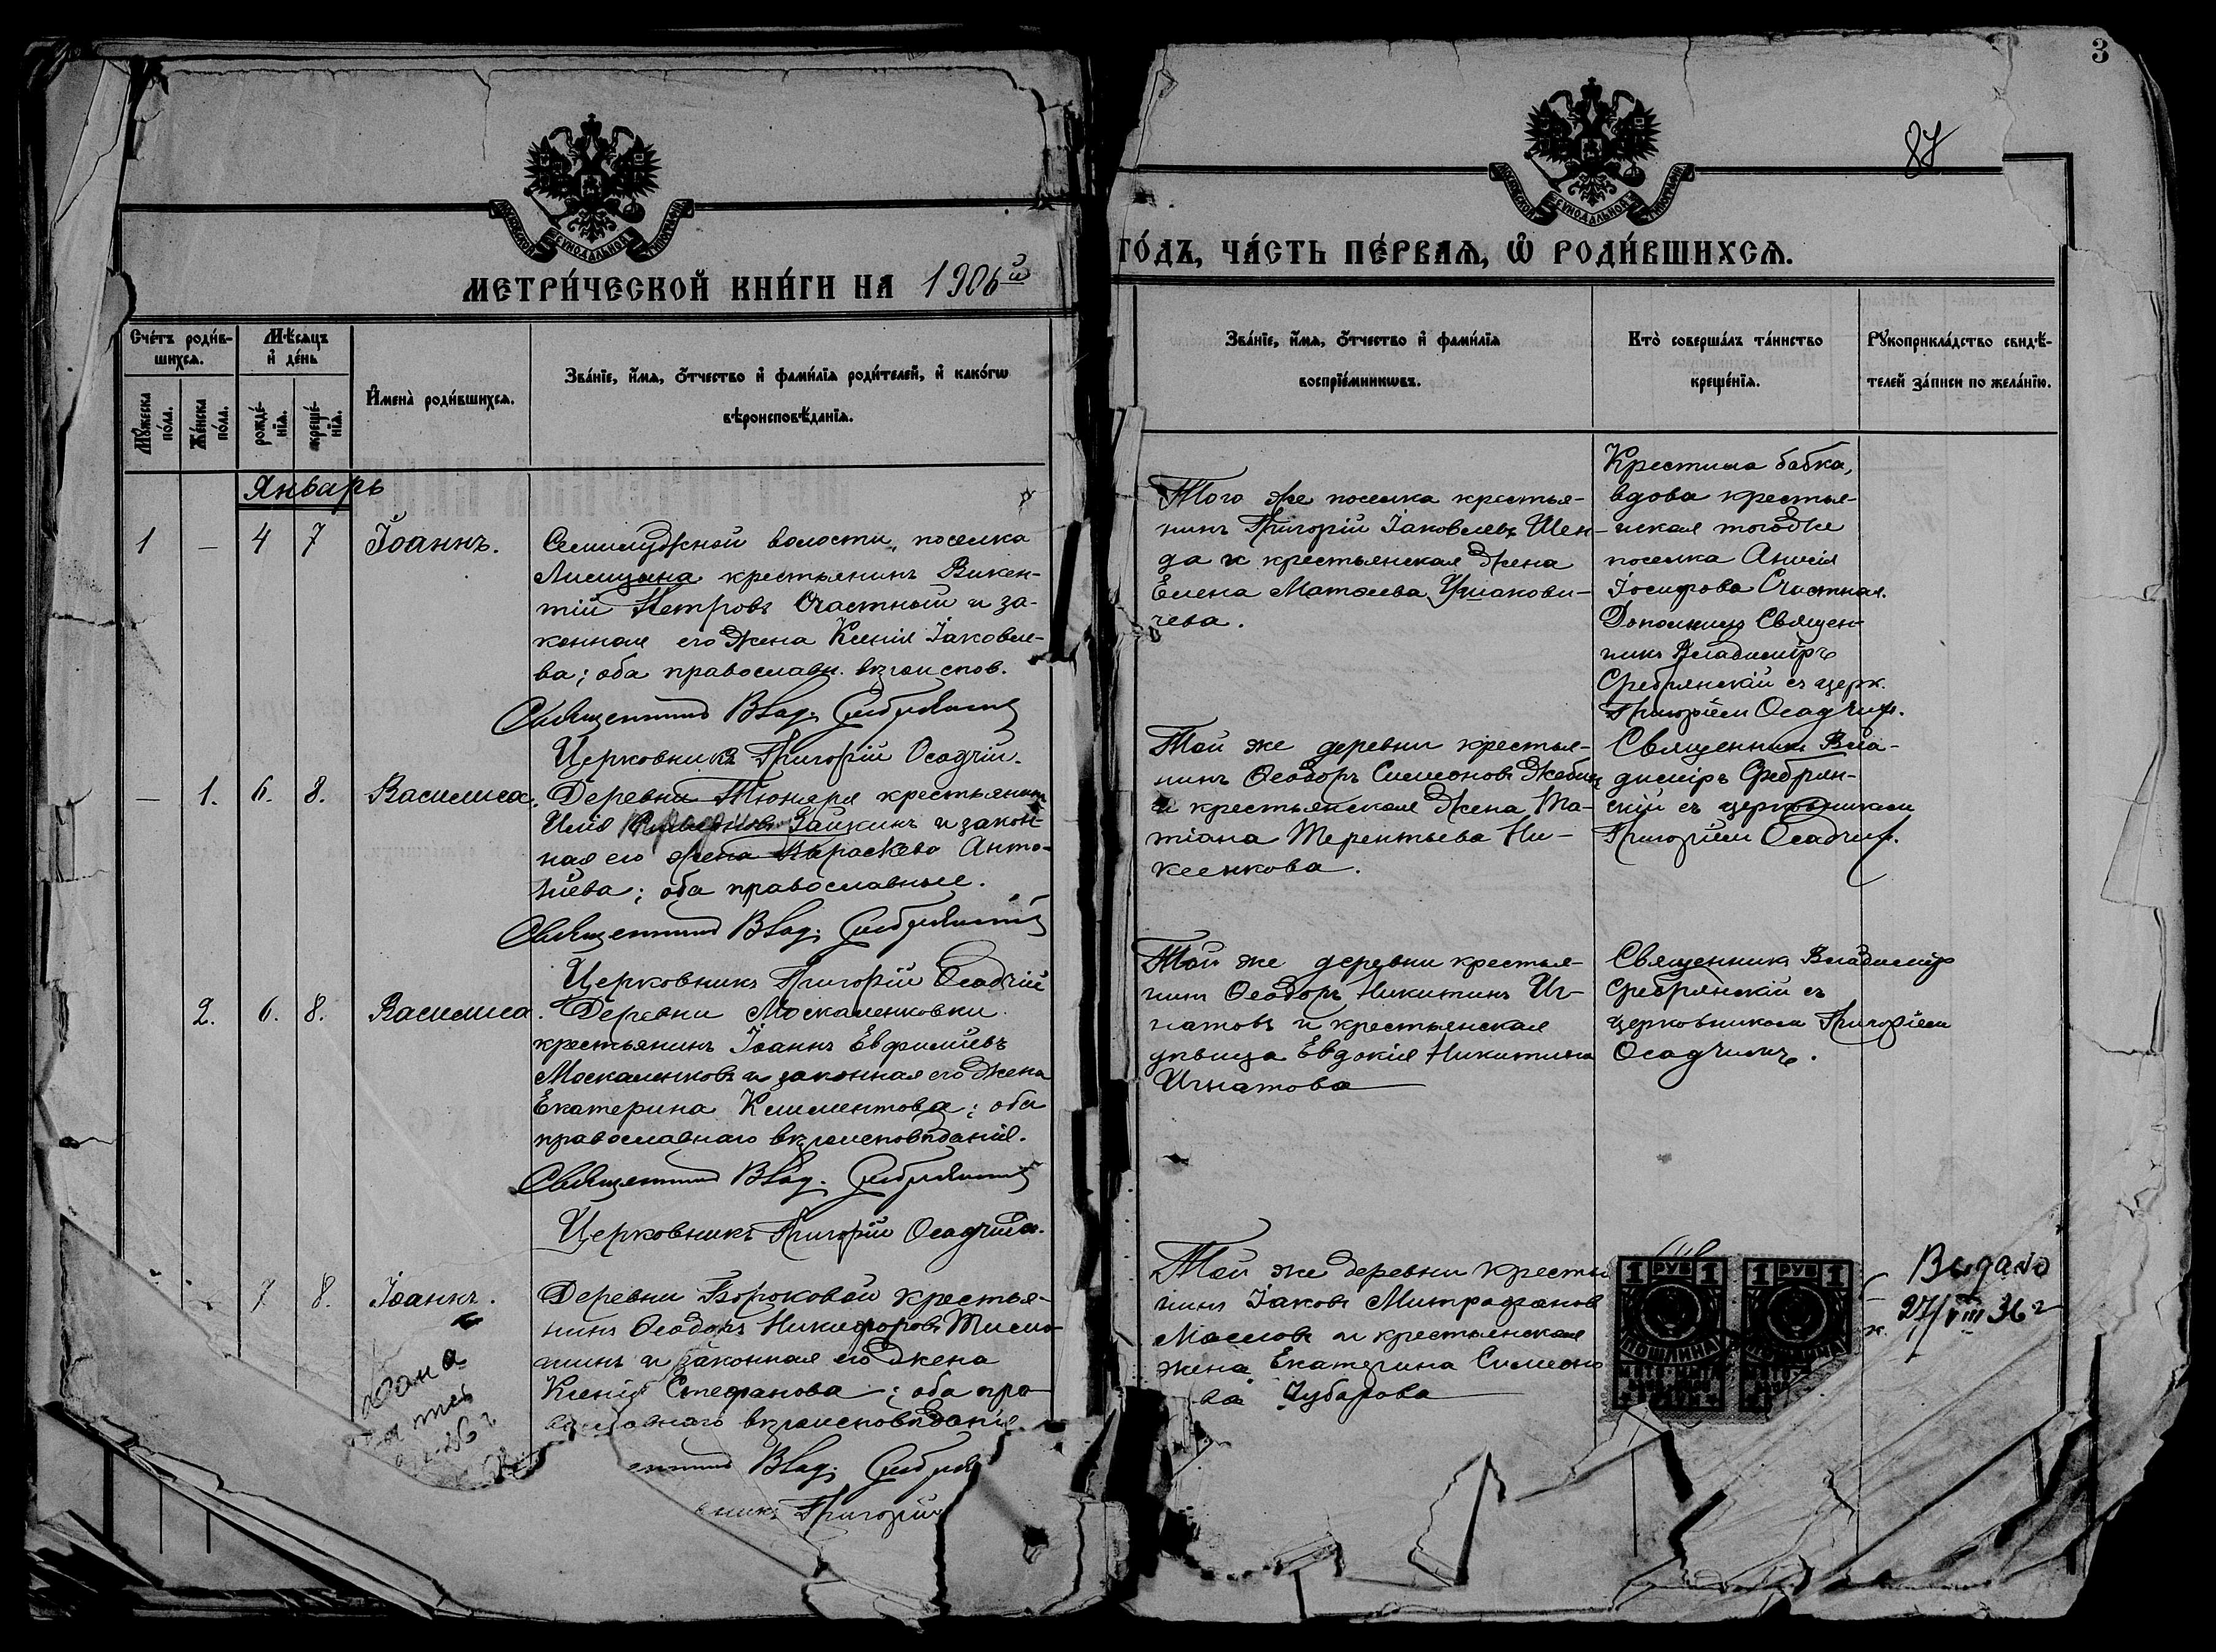 3
87
МОСКОВСКОЙ СѴНОДАЛЬНОЙ ТИПОГРАФІИ
МОСКОВСКОЙ СѴНОДАЛЬНОЙ ТИПОГРАФІИ
МЕТРИ́ЧЕСКОЙ КНИ́ГИ НА 1906й
ГО́ДЪ, ЧА́СТЬ ПЕ́РВАѦ, Ѡ҆ РОДИ́ВШИХСѦ.
Сче́тъ роди́в-
шихсѧ.
Мꙋ́жеска по́ла.
Же́нска по́ла.
Мѣ́сѧцъ и҆ де́нь
рожде́-
нїѧ.
креще́-
нїѧ.
И҆мена̀ роди́вшихсѧ.
Зва́нїе, и҆́мѧ, ѻ҆́тчество и҆ фами́лїѧ роди́телей, и҆ како́гѡ
вѣроисповѣ́данїѧ.
Зва́нїе, и҆́мѧ, ѻ҆́тчество и҆ фами́лїѧ
воспрїе́мникѡвъ.
Кто̀ соверша́лъ та́инство
креще́нїѧ.
Рꙋкоприкла́дство свидѣ́-
телей за́писи по жела́нїю.
Январь
1 — 4 7 Іоаннъ.
волости, поселка
крестьянинъ Викен-
тій Петровъ Счастный и за-
конная его жена Ксенія Іаковле-
ва; оба православн. вѣроиспов.
Священникъ Влад. Сребрянскій
Церковникъ Григорій Осадчій.
Того же поселка крестья-
нинъ Григорій Іаковлевъ Шен-
да и крестьянская жена
Елена Матѳеева Ушакови-
чева.
Крестила бабка,
вдова крестьян-
ская тогоже
поселка
Іосифова Счастная.
Дополнилъ Священ-
никъ Владиміръ
Сребрянскій съ церк.
Григоріем Осадчим.
— 1. 6. 8. Василиса.
Деревни крестьянинъ
Зайцкинъ и закон-
ная его жена Параскева Анто-
ніева; оба православные.
Священникъ Влад. Сребрянскій
Церковникъ Григорій Осадчій
Той же деревни крестья-
нинъ Ѳеодоръ Симеоновъ
и крестьянская жена Та-
тіана Терентьева Ни-
кеенкова.
Священникъ Вла-
диміръ Сребрян-
скій съ церковникомъ
Григоріем Осадчим.
2. 6. 8. Василиса.
Деревни Москаленковки
крестьянинъ Іоаннъ Евфиміевъ
Москаленковъ и законная его жена
Екатерина Климентова; оба
православнаго вѣроисповѣданія.
Священникъ Влад. Сребрянскій
Церковникъ Григорій Осадчій.
Той же деревни крестья-
нинъ Ѳеодоръ Никитинъ Иг-
натовъ и крестьянская
дѣвица Евдокія Никитина
Игнатова
Священникъ Владиміръ
Сребрянскій съ
церковникомъ Григоріем
Осадчимъ.
7 8. Іоаннъ.
Деревни крестья-
нинъ Ѳеодоръ Никифоровъ
и законная его жена
Ксенія Стефанова; оба пра-
вославнаго вѣроисповѣданія
Влад. Сребрян
Григорій
Той же деревни кресть
нинъ Іаковъ Митрофанов
Маслов и крестьянская
жена Екатерина Симеоно
ва Зубарова
1 РУБ 1
ПОШЛИНА
1 РУБ 1
ПОШЛИНА
Выдано
27/VIII 36 г